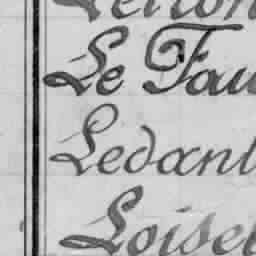 Le Fau
Ledanl
Loisel